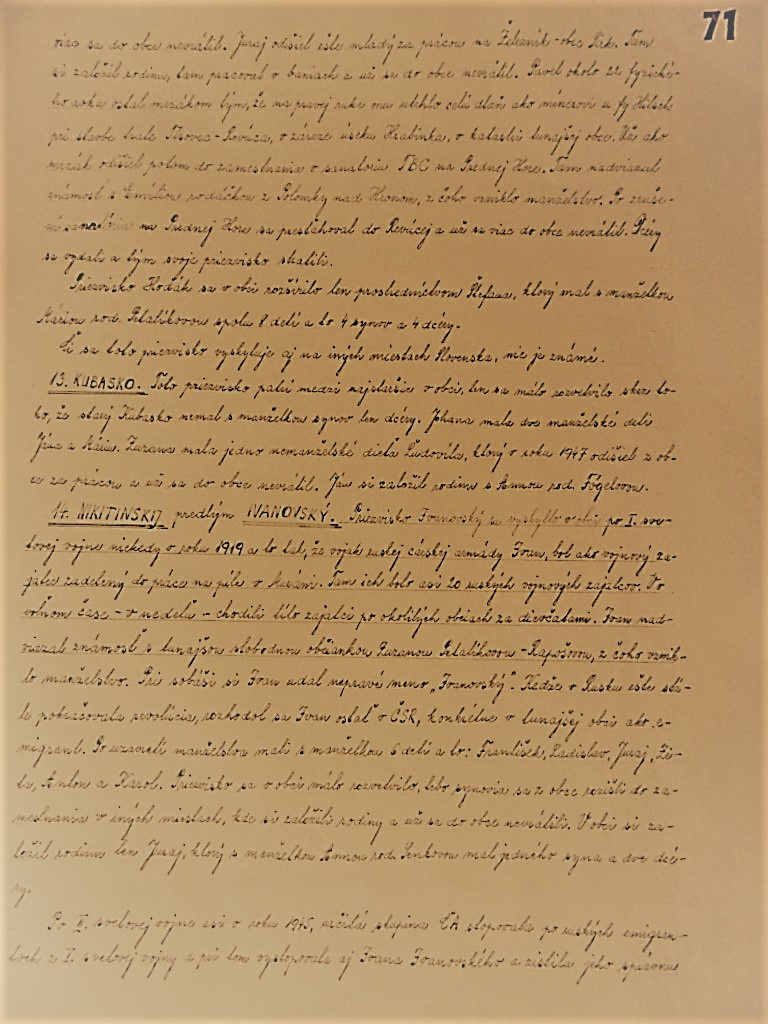 71
viac sa do obce nevrátil. Juraj odišiel ešte mladý za prácou na Železník - obec Sirk. Tam
si založil rodinu, tam pracoval v baniach a už sa do obce nevrátil. Pavel okolo 22 fyzické-
ho roku ostal mrzákom tým, že na pravej ruke mu utrhlo celú dlaň ako minérovi u fy Hitsch
pri stavbe trate Tisovec - Revúca, v záreze úseku Hrabinka, v katastri tunajšej obce. Už ako
mrzák odišiel potom do zamestnania v sanatóriu TBC na Prednej Hore. Tam nadviazal
známosť s Emíliou rodáčkou z Polomky nad Hronom, z čoho vzniklo manželstvo. Po zruše-
ní sanatória na Prednej Hore sa presťahoval do Revúcej a už sa viac do obce nevrátil. Dcéry
sa vydali a tým svoje priezvisko stratili.
Priezvisko Hodák sa v obci rozšírilo len prostredníctvom Štefana, ktorý mal s manželkou
Máriou rod. Petalíkovou spolu 8 detí a to 4 synov a 4 dcéry.
Či sa toto priezvisko vyskytuje aj na iných miestach Slovenska, nie je známe.
13. KUBASKO. Toto priezvisko patrí medzi najstaršie v obci, len sa málo rozvetvilo skrz to-
ho, že starý Kubasko nemal s manželkou synov len dcéry. Johana mala dve manželské deti
Jána a Máriu. Zuzana mala jedno nemanželské dieťa Ľudovíta, ktorý v roku 1947 odišiel z ob-
ce za prácou a už sa do obce nevrátil. Ján si založil rodinu s Annou rod. Fögelovou.
14. NIKITINSKIJ predtým IVANOVSKÝ. Priezvisko Ivanovský sa vyskytlo v obci po I. sve-
tovej vojne niekedy v roku 1919 a to tak, že vojak ruskej cárskej armády Ivan, bol ako vojnový za-
jatec zadelený do práce na píle v Muráni. Tam ich bolo asi 20 ruských vojnových zajatcov. Vo
voľnom čase - v nedeľu - chodili títo zajatci po okolitých obciach za dievčatami. Ivan nad-
viazal známosť s tunajšou slobodnou občiankou Zuzanou Petalíkovou - Raposovou, z čoho vznik-
lo manželstvo. Pri sobáši si Ivan udal nepravé meno „Ivanovský". Kedže v Rusku ešte stá-
le pokračovala revolúcia, rozhodol sa Ivan ostať v ČSR, konkrétne v tunajšej obci ako e-
migrant. Po uzavretí manželstva mali s manželkou 6 detí a to: František, Ladislav, Juraj, Zi-
ta, Anton a Karol. Priezvisko sa v obci málo rozvetvilo, lebo synovia sa z obce rozišli do za-
mestnania v iných miestach, kde si založili rodiny a už sa do obce nevrátili. V obci si za-
ložil rodinu len Juraj, ktorý s manželkou Annou rod. Senkovou mal jedného syna a dve dcé-
ry.
Po II. svetovej vojne asi v roku 1945, určitá skupina ČA stopovala po ruských emigran-
toch z I. svetovej vojny a pri tom vystopovala aj Ivana Ivanovského a zistila jeho správne